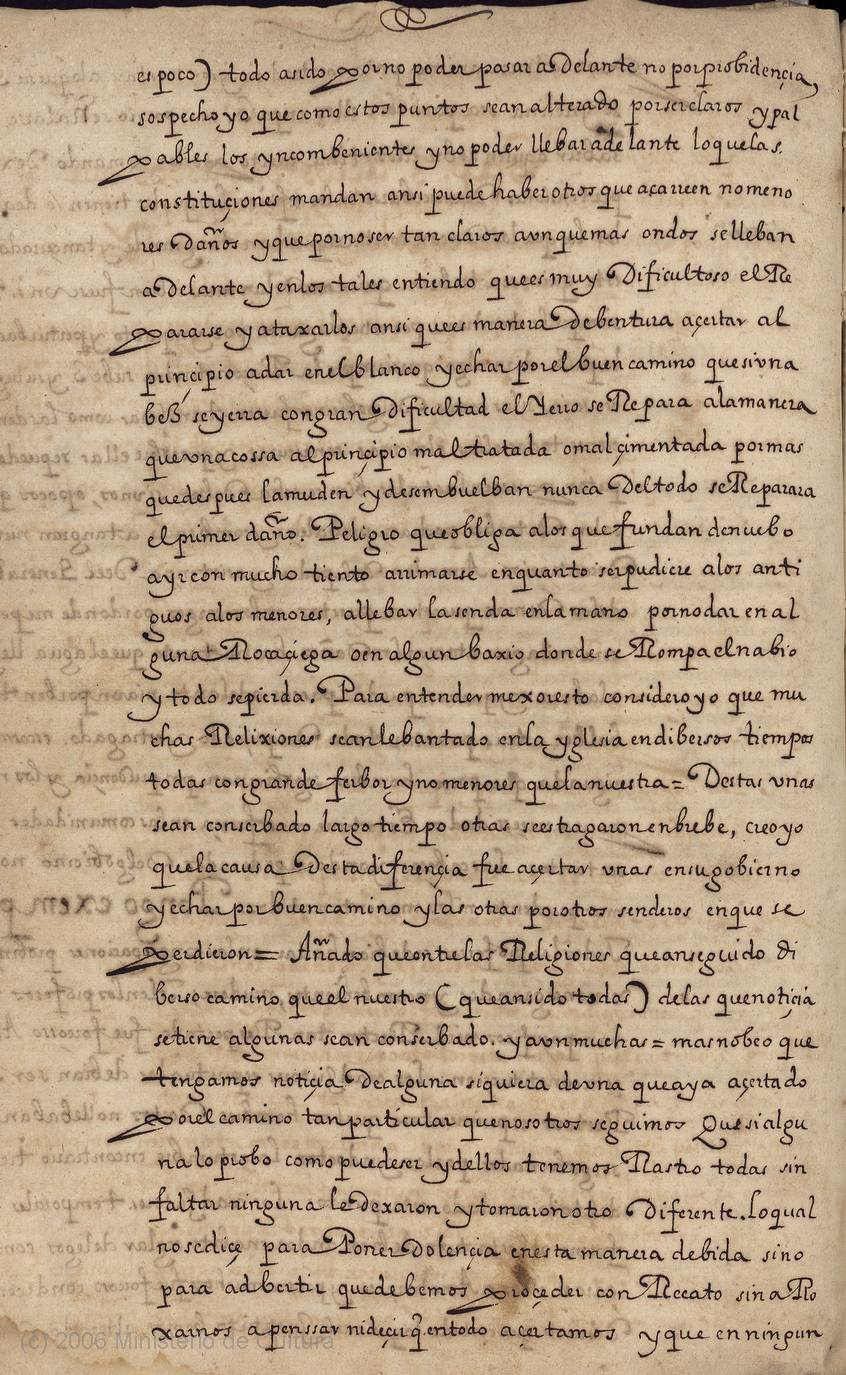 es poco) todo a sido por no poder pasar adelante no por probidençia,
sospecho yo que como estos puntos se an alterado por ser claros y pal
pables los ynconbenientes y no poder llebar adelante lo que las
constituçiones mandan ansi puede haber otros que açarreen no meno
res daños y que por no ser tan claros aunque mas ondos se lleban
adelante y en los tales entiendo que es muy dificultoso el Re
pararse y ataxarlos ansi que es manera de bentura açertar al
principio a dar en el blanco y echar por el buen camino que si una
beß se yerra con gran dificultad el Yerro se Repara a la manera
que una cossa al prinçipio mal tratada o mal çimentada por mas
que despues la muden y desembuelban nunca del todo se Reparara
el primer daño. Peligro que obliga a los que fundan de nuebo
a yr con mucho tiento arrimarse en quanto ser pudiere a los anti
guos a los menores, a llebar la senda en la mano por no dar en al
guna Roca çiega o en algun baxio donde se Rompa el nabio
y todo se pierda. Para entender mexor esto considero yo que mu
chas Relixiones se an lebantado en la yglesia en dibersos tiempos
todas con grande ferbor y no menores que la nuestra = Destas unas
se an conserbado largo tiempo otras se estragaron en brebe, creo yo
que la causa desta diferençia fue açertar unas en su gobierno
y echar por buen camino y las otras por otros senderos en que se
perdieron = Añado que entre las Religiones que an seguido di
berso camino que el nuestro (que an sido todas) de las que notiçia
se tiene algunas se an conserbado. y aun muchas = mas no beo que
tengamos notiçia de alguna siquiera de una que aya açertado
por el camino tan particular que nosotros seguimos Que si algu
na lo probo como puede ser y dellos tenemos Rastro todas sin
faltar ninguna le dexaron y tomaron otro diferente. lo qual
no se diçe para Poner dolençia en esta manera de bida sino
para adbertir que debemos proçeder con Recato sin aRo
xarnos a penssar ni deçir q̃. en todo açertamos y que en ningun
(c) 2006 Ministerio de Cultura